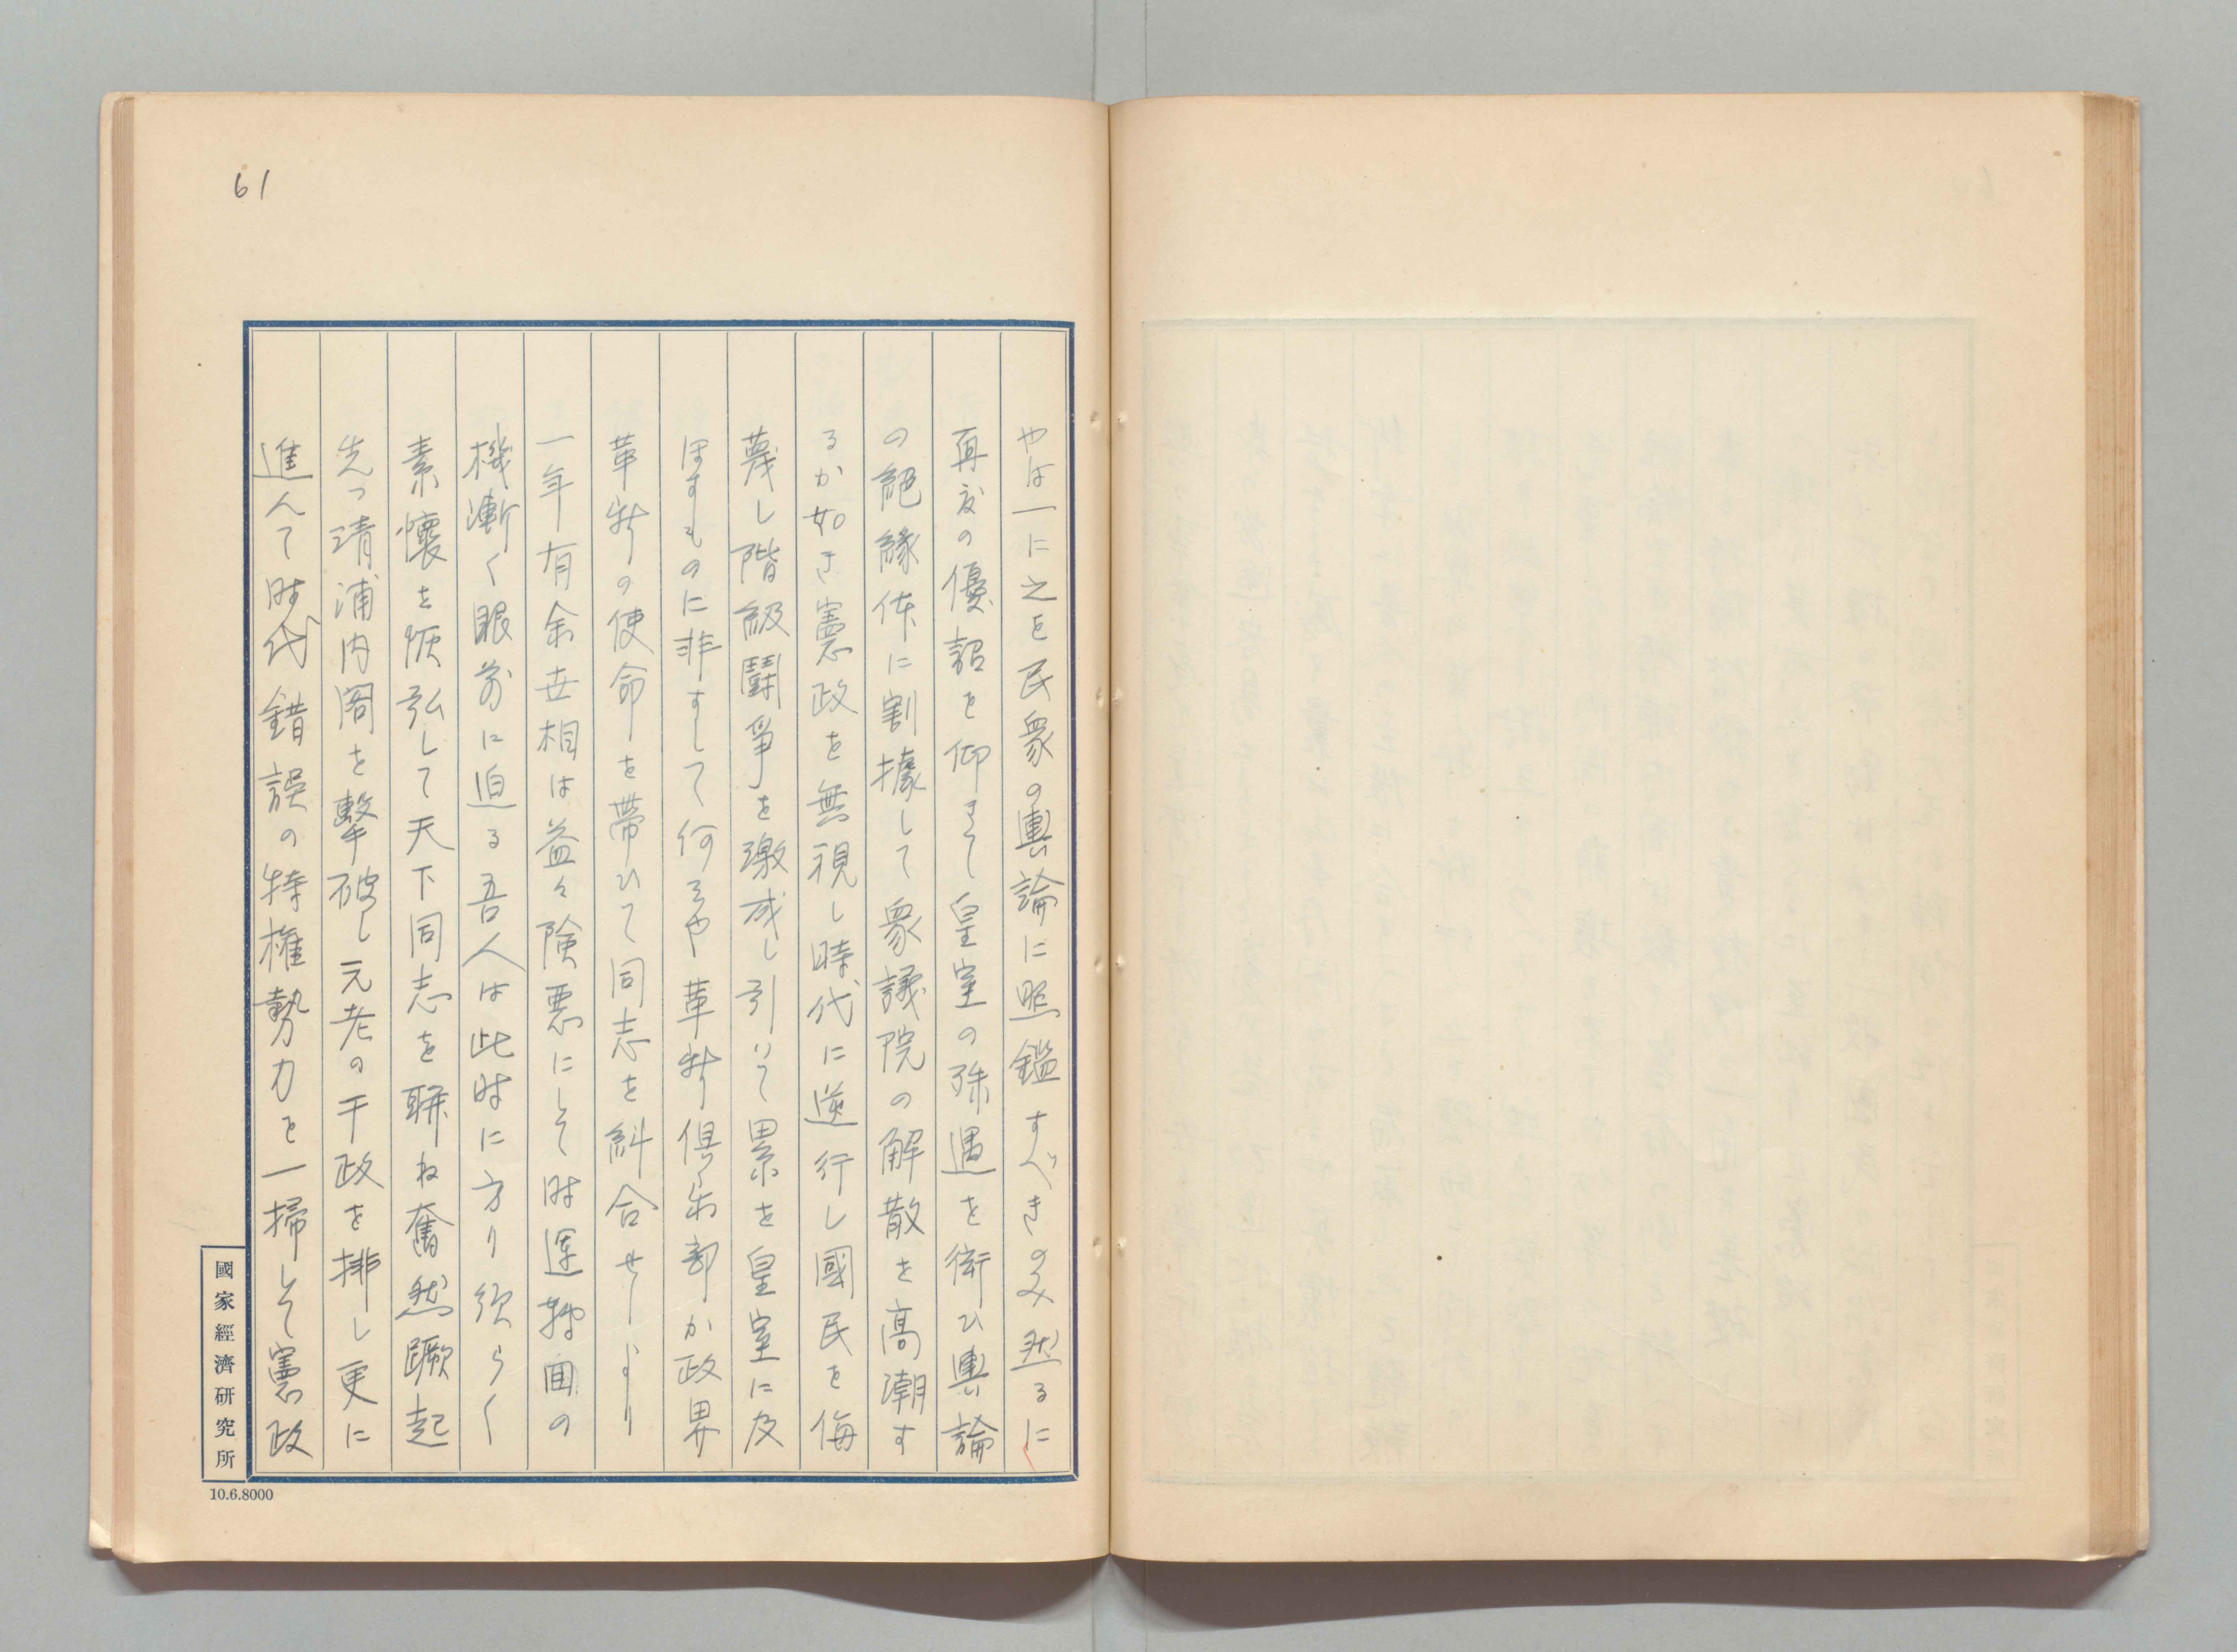 61
やは一に之を民衆の輿論に照鑑すべきのみ然るに
再度の優詔を仰きて皇室の殊遇を衒ひ輿論
の絶縁体に割據して衆議院の解散を高潮す
るか如き憲政を無視し時代に逆行し國民を侮
蔑し階級鬪爭を激成し引いて累を皇室に及
ほすものに非すして何そや革新倶楽部か政界
革新の使命を帯ひて同志を糾合せしより
一年有余世相は益々険悪にして时運轉囬の
機漸く眼前に迫る吾人は此时に方り須らく
素懐を恢弘して天下同志を聯ね奮然蹶起
先つ清浦内閣を擊破し元老の干政を排し更に
進んて时代錯誤の特権勢力を一掃して憲政
國家經濟研究所
10.6.8000